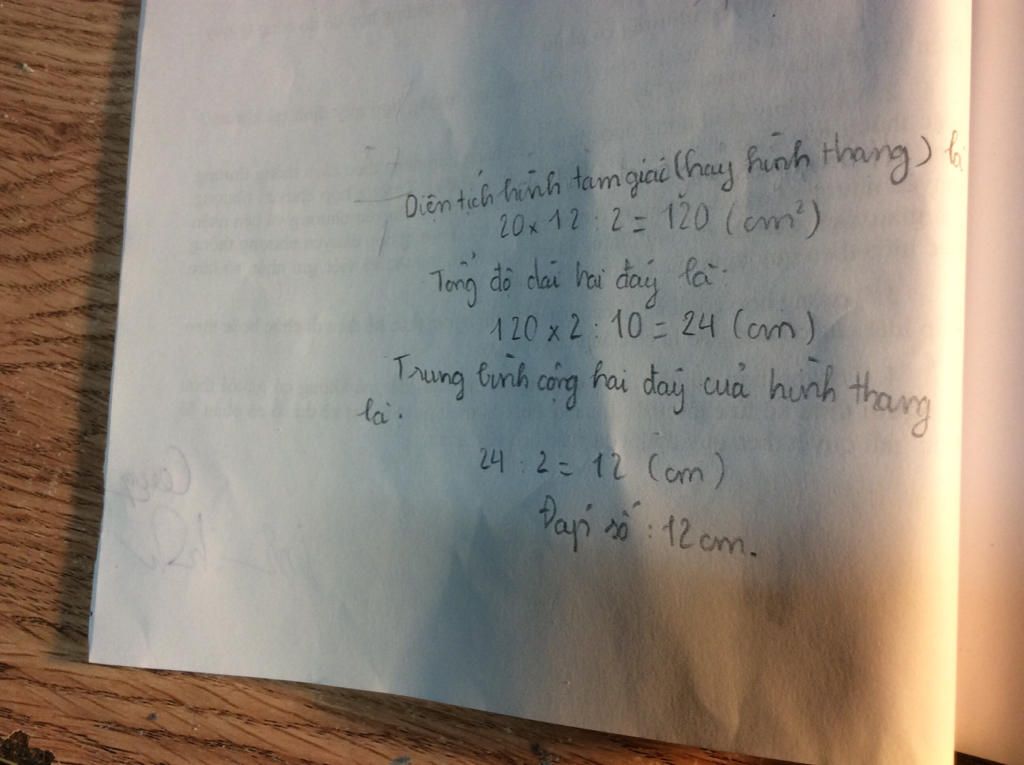 Diện tích hình tam giác (hay hình thang) là
20 x 12 : 2 = 120 (cm²)
Tổng độ dài hai đáy là:
120 x 2 : 10 = 24 (cm)
Trung bình cộng hai đáy của hình thang
là:
24 : 2 = 12 (cm)
Đáp số : 12 cm.